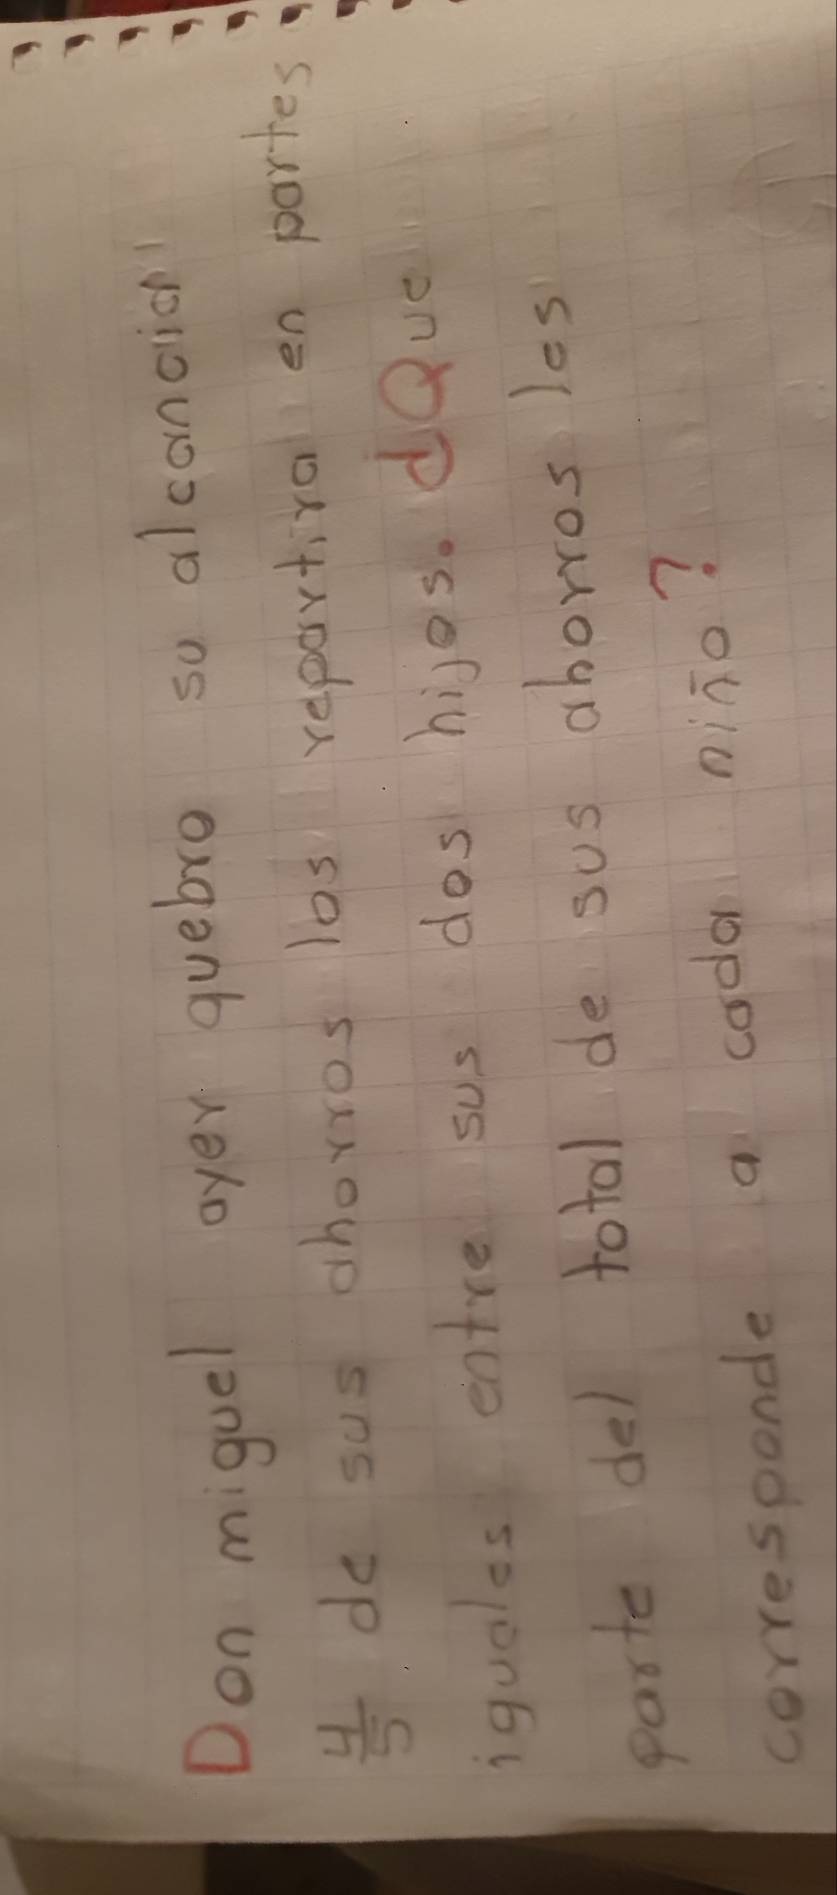 Don miguel ayer quebro su alcancia
4/5 de sus ahorros los repartira en partes
iguales entre sus dos hijos. ¿Que
parte del total de sus ahorros les
corresponde a cada niño?